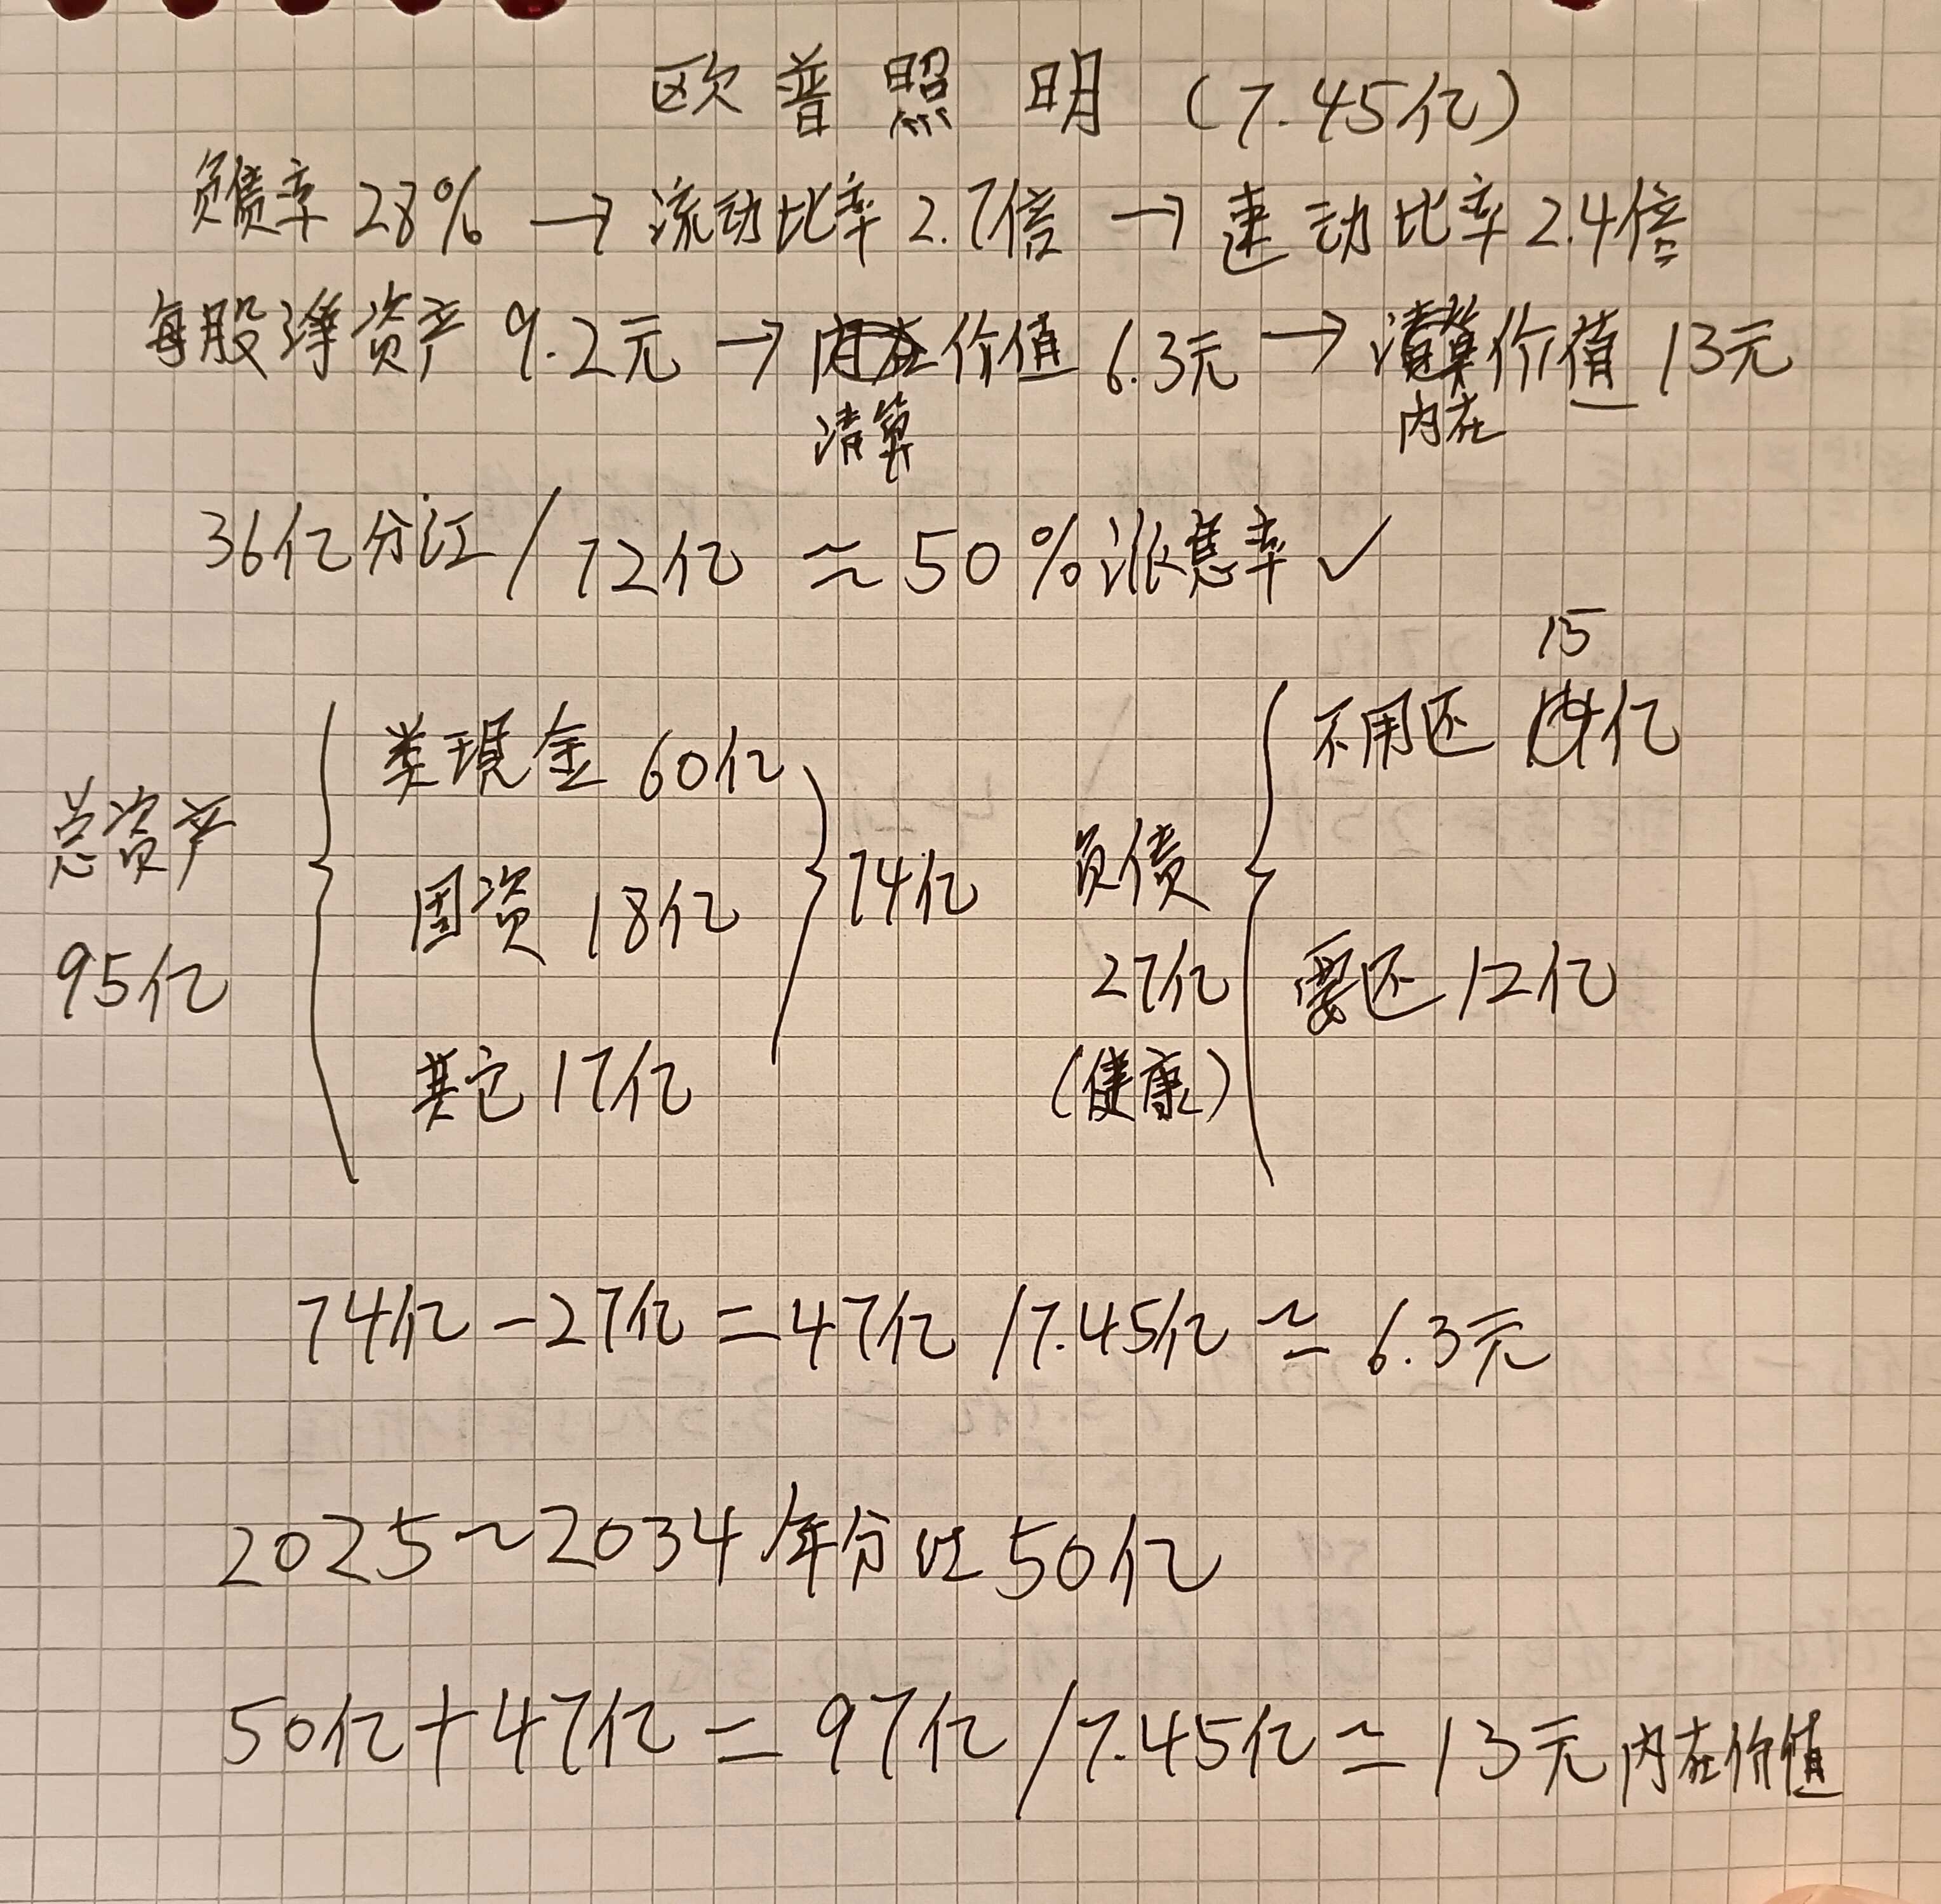 欧普照明(7.45亿)
负债率28%→流动比率2.7倍→速动比率2.4倍
每股净资产9.2元→内在价值6.3元→清算价值13元
清算 内在
36亿分江/72亿≈50%派息率✓
总资产
95亿
类現金60亿
固资18亿
其它17亿
74亿
负债
27亿
(健康)
15
不用还14亿
要还12亿
74亿-27亿=47亿/7.45亿≃6.3元
2025~2034年分红50亿
50亿+47亿=97亿/7.45亿≃13元内在价值